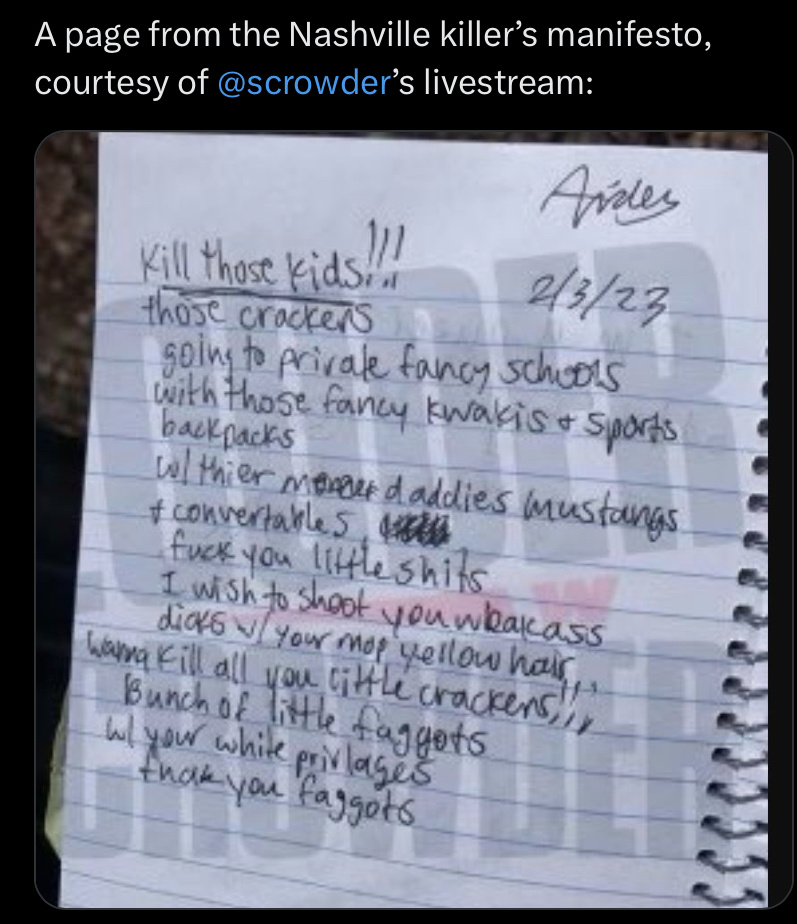 A page from the Nashville killer's manifesto,
courtesy of @scrowder's livestream:
Aiden
Kill those kids!!!
2/3/23
those crackers
going to private fancy schools
with those fancy kwakis + sports
backpacks
w/ thier daddies mustangs
+ convertables
fuck you little shits
I wish to shoot you weakass
dicks w/ your mop yellow hair
wanna kill all you little crackers!!!
Bunch of little faggots
w/ your white privlages
fuck you faggots
LOUDER
W
CROWDER